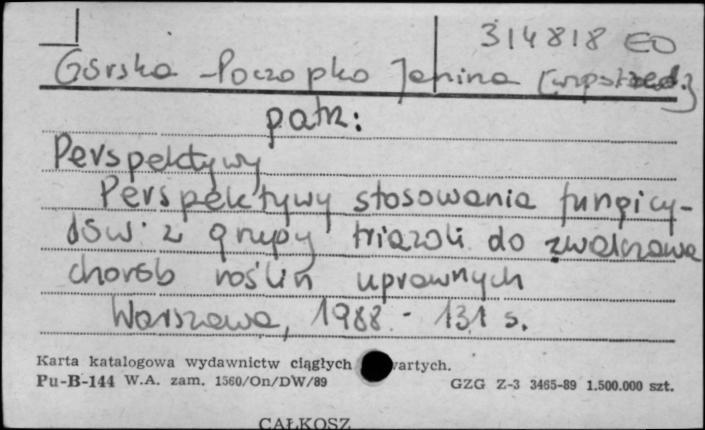 314818 EO
Górska-Poczopko Janina [współred.]
patrz:
Perspektywy
Perspektywy stosowania fungicy-
dów z grupy triazoli do zwalczania
chorób roślin uprawnych
Warszawa, 1988 - 131 s.
Karta katalogowa wydawnictw ciągłych wartych.
Pu-B-144 W.A. zam. 1560/On/DW/89 GZG Z-3 3465-89 1.500.000 szt.
CAŁKOSZ